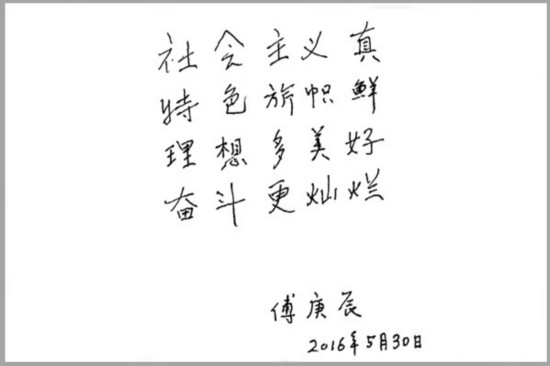 社会主义真
特色旗帜鲜
理想多美好
奋斗更灿烂
傅庚辰
2016年5月30日